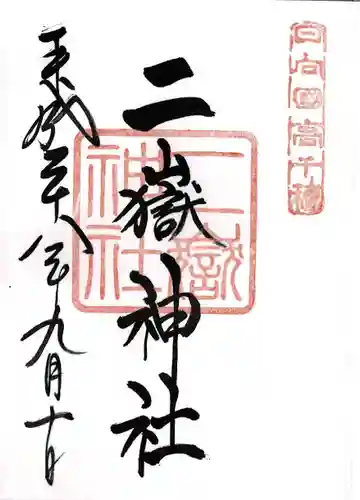 日向国高千穂
二嶽神社
二嶽神社
平成二十八年九月十日